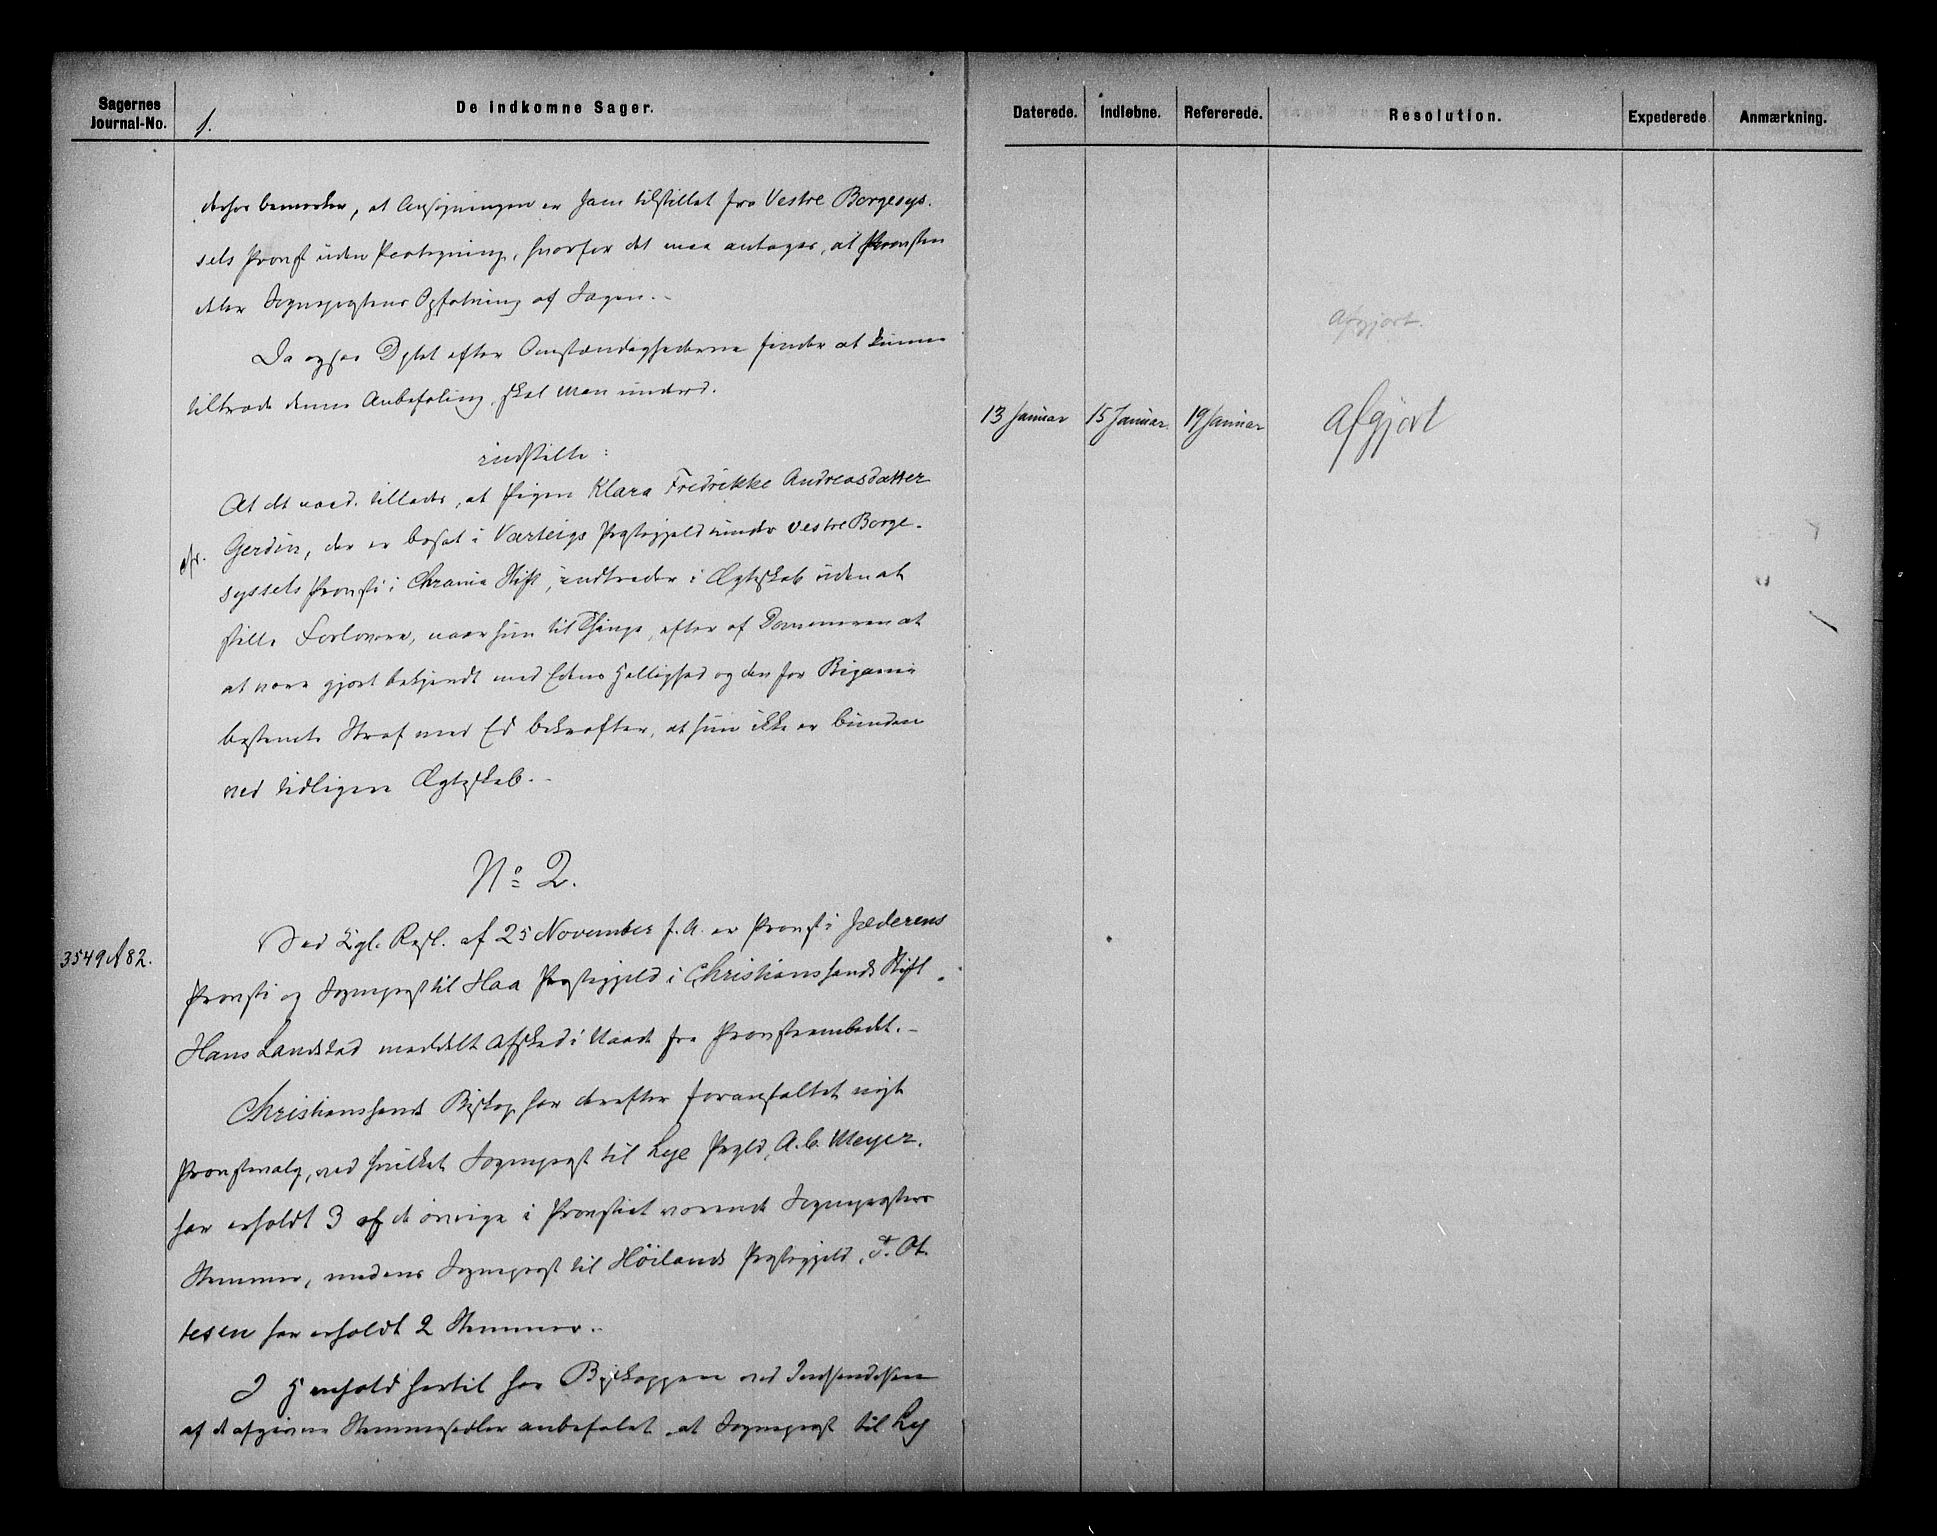 Sagernes
Journal-No.
De indkomne Sager.
Daterede.
Indløbne.
Refererede.
Resolution.
Expederede.
Anmærkning.
1.
derhos bemærker, at Ansøgningen er ham tilstillet fra Vestre Borgesys-
sels Provst uden Paategning, hvorfor det maa antages, at Provsten
deler Sognepræstens Opfatning af Sagen.-
Da ogsaa Dptet efter Omstændighederne finder at kunne
tiltræde denne Anbefaling, skal man underd.
indstille:
At det naad. tillades, at Pigen Klara Fredrikke Andreasdatter
Gerdin, der er bosat i Varteigs Præstegjeld under Vestre Borge-
syssels Provsti i Chrania Stift, indtræder i Ægteskab uden at
stille Forlovere, naar hun til Thinge, efter af Dommeren at
at være gjort bekjendt med Edens Hellighed og den for Bigami
bestemte Straf med Ed bekræfter, at hun ikke er bunden
ved tidligere Ægteskab.-
Afgjort.
13 Januar
15 Januar
19 Januar
Afgjort
No 2.
3549 A 82.
Ved Kgl. Resl. af 25 November f. A. er Provst i Jæderens
Provsti og Sognepræst til Haa Præstegjeld i Christianssands Stift
Hans Landstad meddelt Afsked i Naade fra Provsteembedet.-
Christianssands Biskop har derefter foranstaltet nyt
Provstevalg, ved hvilket Sognepræst til Lye Prgld, A. C. Meyer.
har erholdt 3 af de øvrige i Provstiet værende Sognepræsters
Stemmer, medens Sognepræst til Höilands Præstegjeld, T. Ot
tesen har erholdt 2 Stemmer.-
I Henhold hertil har Biskoppen ved Indsendelsen
af de afgivne Stemmesedler anbefalet at Sognepræst til Ly